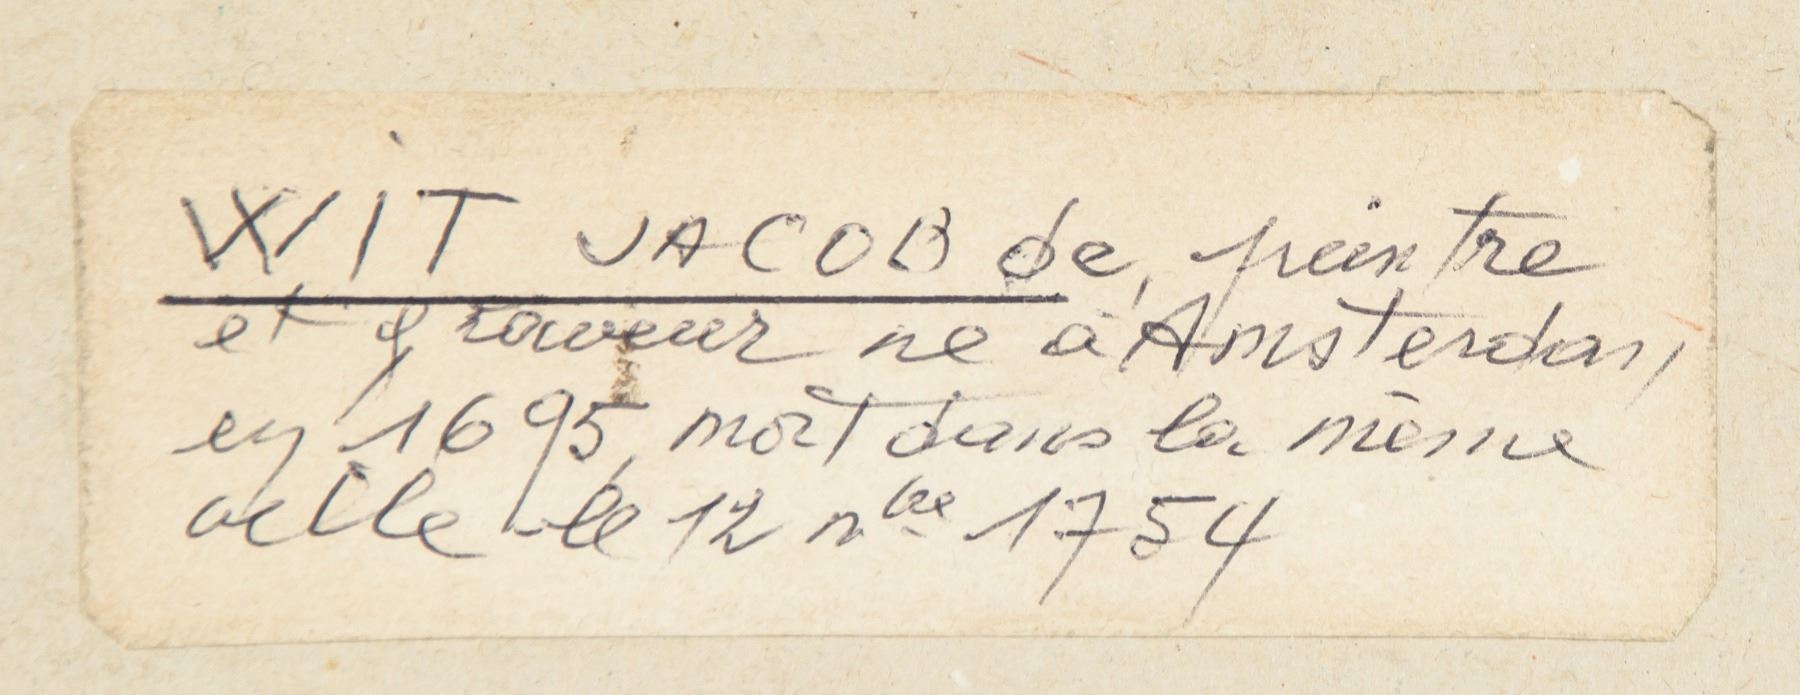 WIT JACOB de, peintre
et graveur ne à Amsterdam
en 1695, mort dans la même
ville le 12 nbre 1754